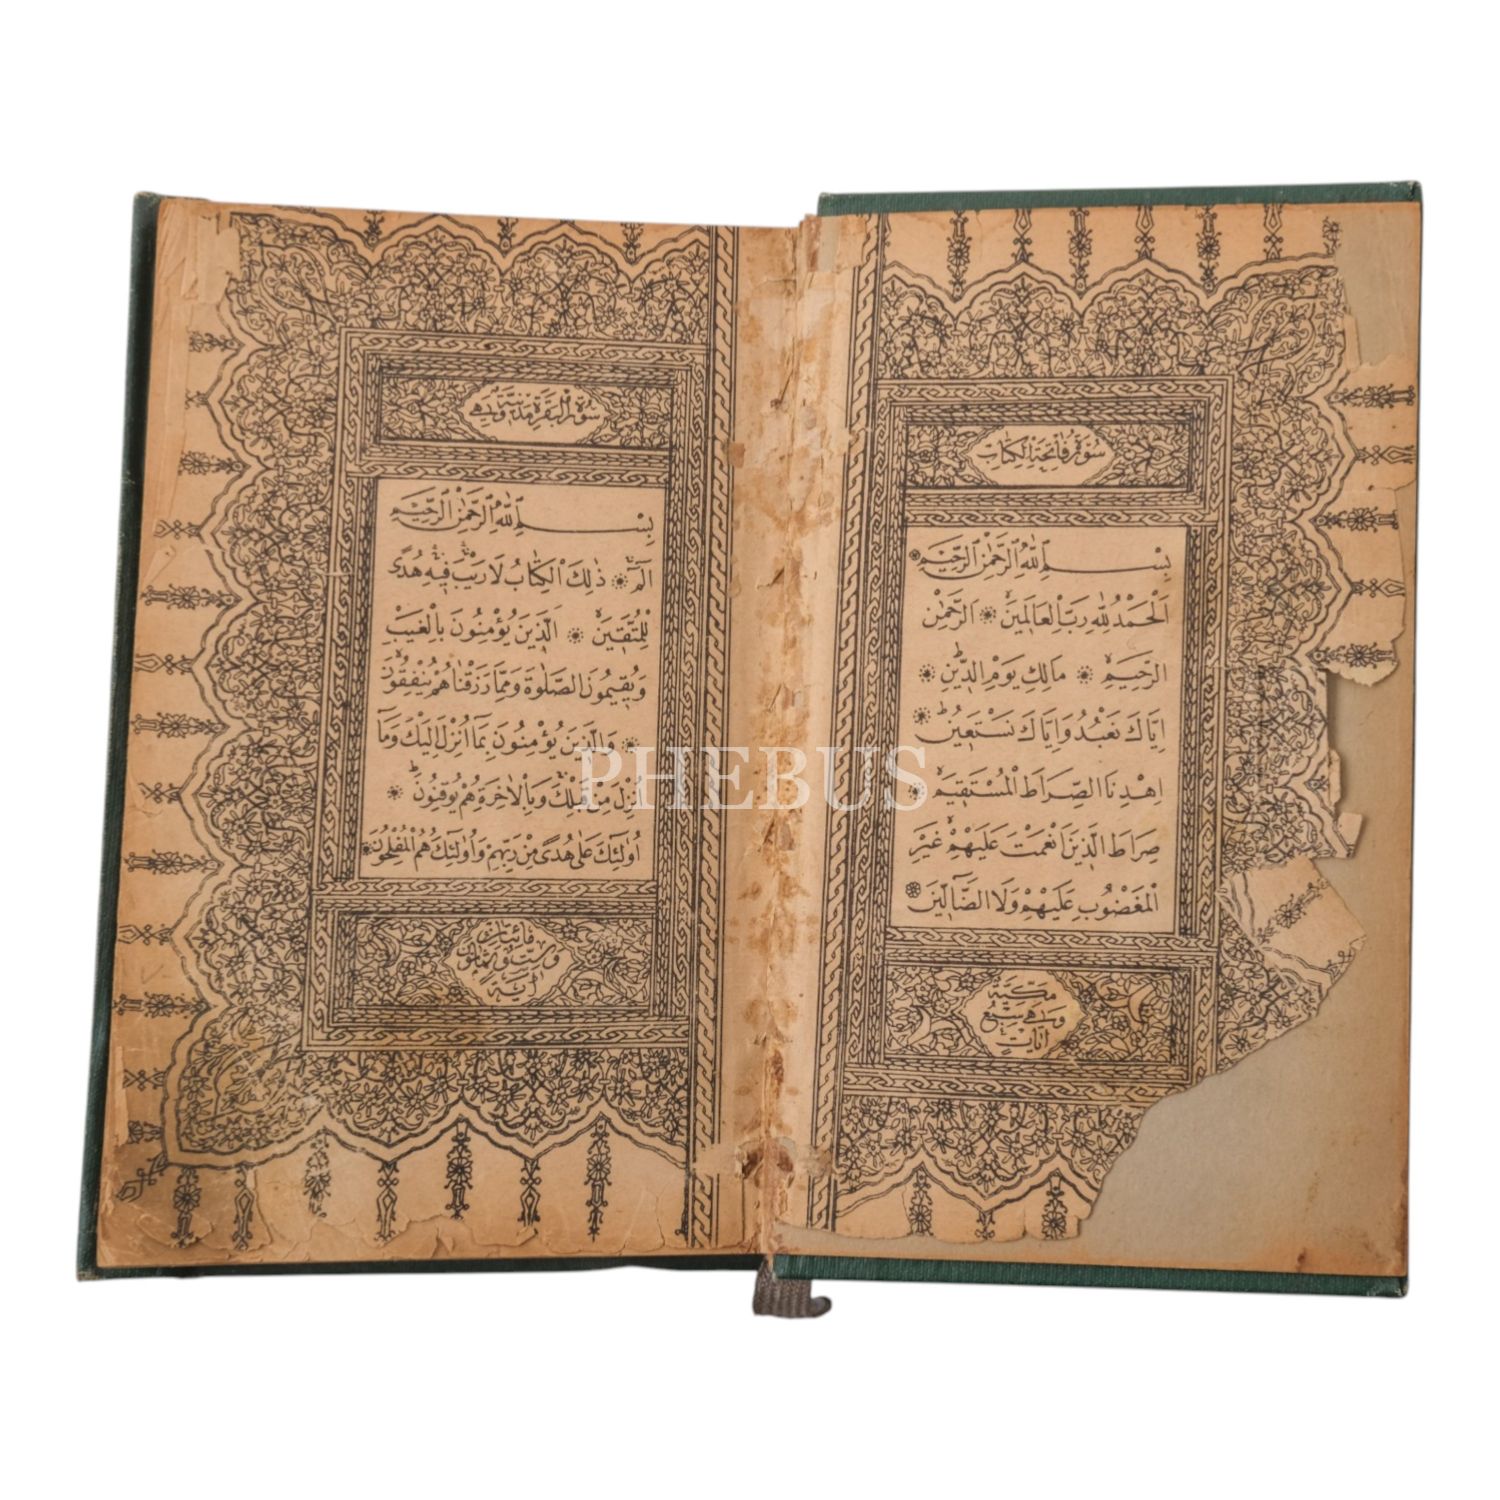 سورة فاتحة الكتاب
بِسْمِ اللّٰهِ الرَّحْمٰنِ الرَّحِيمِ
اَلْحَمْدُ لِلّٰهِ رَبِّ الْعَالَمِينَۙ اَلرَّحْمٰنِ
الرَّحِيمِۙ مَالِكِ يَوْمِ الدِّينِۜ
اِيَّاكَ نَعْبُدُ وَاِيَّاكَ نَسْتَعِينُۜ
اِهْدِنَا الصِّرَاطَ الْمُسْتَقِيمَۙ
صِرَاطَ الَّذِينَ اَنْعَمْتَ عَلَيْهِمْۙ غَيْرِ
الْمَغْضُوبِ عَلَيْهِمْ وَلَا الضَّٓالِّينَ
مكية
وهي سبع
آيات
سورة البقرة مدنية وهي
بِسْمِ اللّٰهِ الرَّحْمٰنِ الرَّحِيمِ
الٓمٓۚ ذٰلِكَ الْكِتَابُ لَا رَيْبَۚۛ فِيهِۚۛ هُدًى
لِلْمُتَّقِينَۙ اَلَّذِينَ يُؤْمِنُونَ بِالْغَيْبِ
وَيُقِيمُونَ الصَّلٰوةَ وَمِمَّا رَزَقْنَاهُمْ يُنْفِقُونَۙ
وَالَّذِينَ يُؤْمِنُونَ بِمَٓا اُنْزِلَ اِلَيْكَ وَمَٓا
اُنْزِلَ مِنْ قَبْلِكَۚ وَبِالْاٰخِرَةِ هُمْ يُوقِنُونَۜ
اُولٰٓئِكَ عَلٰى هُدًى مِنْ رَبِّهِمْ وَاُولٰٓئِكَ هُمُ الْمُفْلِحُونَ
مائتان
وست وثمانون
آية
PHEBUS